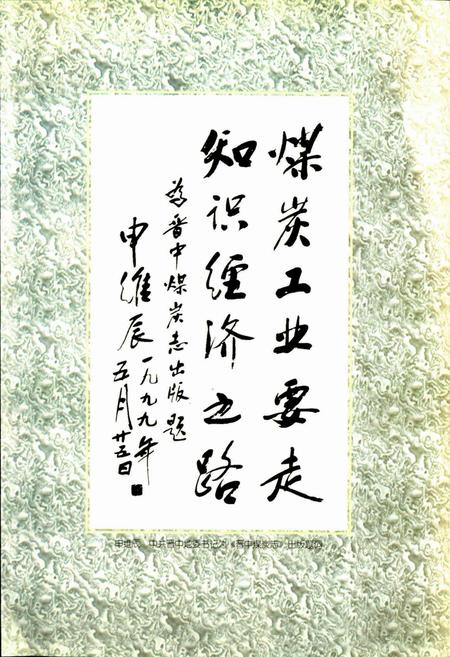 煤炭工业要走
知识经济之路
为晋中煤炭志出版题
申维辰 一九九九年
五月廿五日
申维辰 中共晋中地委书记为《晋中煤炭志》出版题词